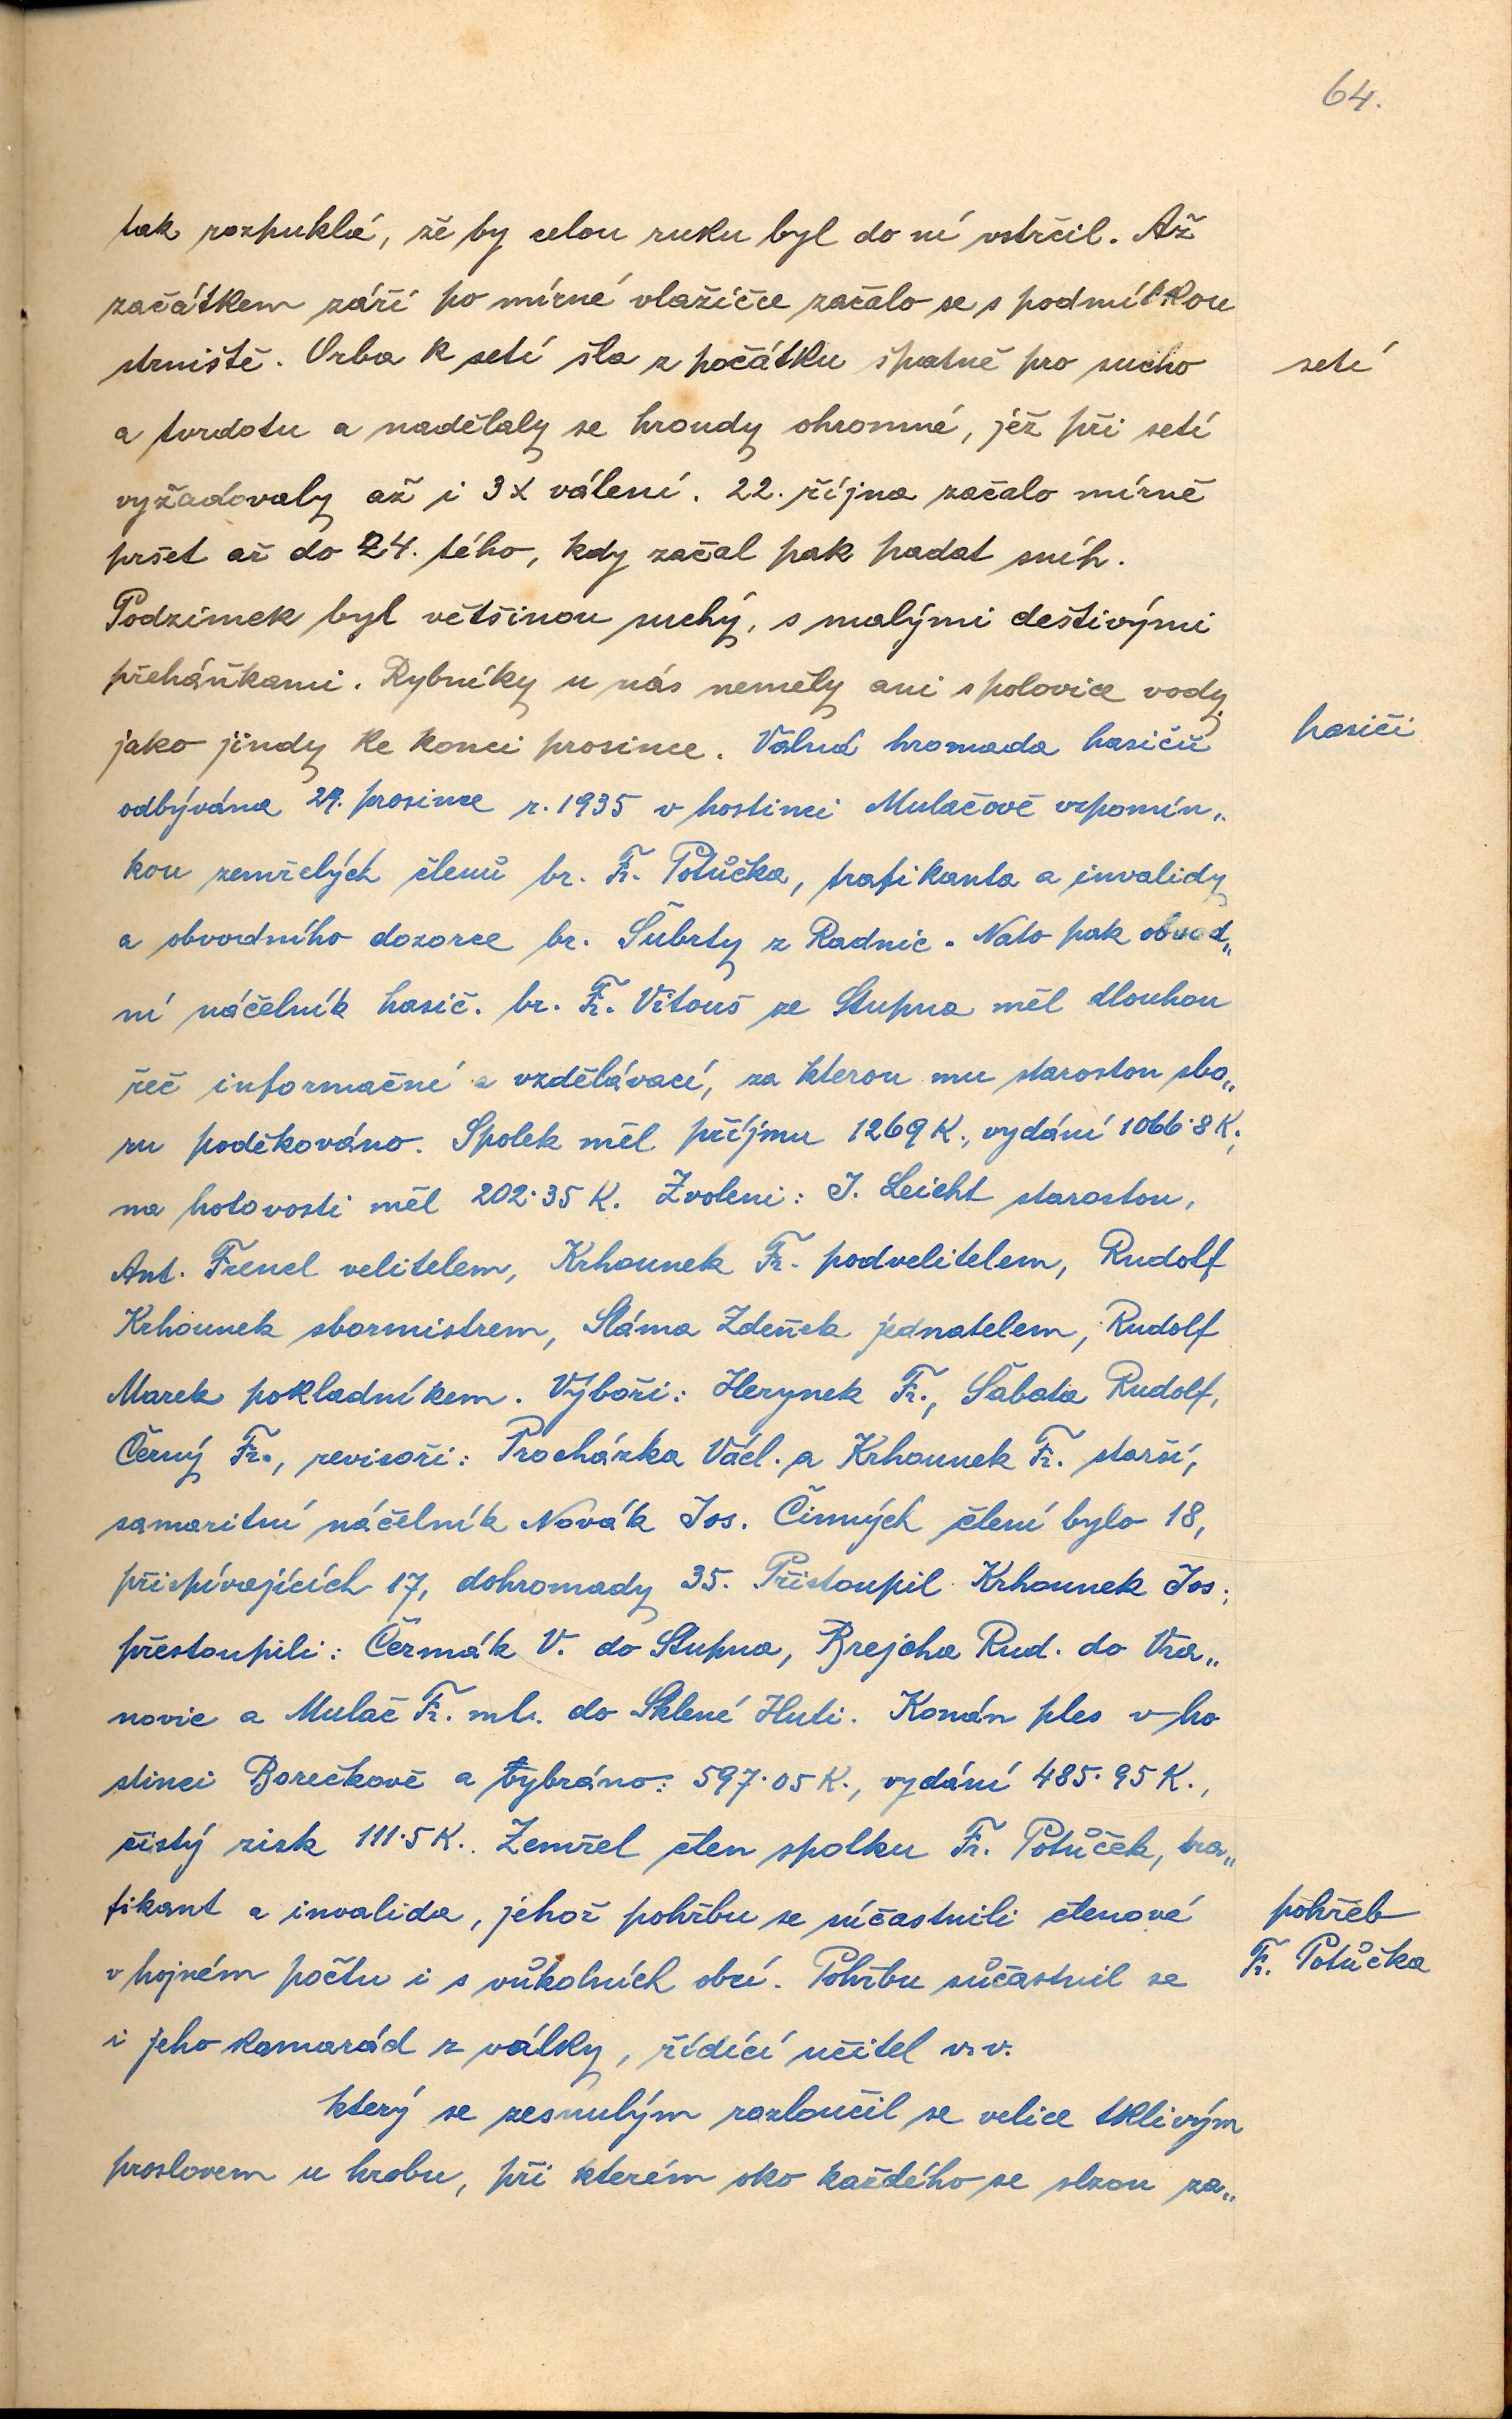 64.
tak rozpuklá, že by celou ruku byl do ní vstrčil. Až
začátkem září po mírné vlažičce začalo se s podmítkou
strniště. Orba k setí šla z počátku špatně pro sucho
setí
a tvrdotu a nadělaly se hroudy ohromné, jež při setí
vyžadovaly až i 3x válení. 22. října začalo mírně
pršet až do 24. tého, kdy začal pak padat sníh.
Podzimek byl většinou suchý, s malými deštivými
přeháňkami. Rybníky u nás neměly ani s polovice vody
jako jindy ke konci prosince. Valná hromada hasičů
hasiči
odbývána 29. prosince r. 1935 v hostinci Mulačově vzpomín„
kou zemřelých členů br. Fr. Potůčka, trafikanta a invalidy
a obvodního dozorce br. Šubrty z Radnic. Nato pak obvod„
ní náčelník hasič. br. Fr. Vítouš ze Stupna měl dlouhou
řeč informační a vzdělávací, za kterou mu starostou sbo„
ru poděkováno. Spolek měl příjmu 1269 K., vydání 1066·8 K.,
na hotovosti měl 202·35 K. Zvoleni: J. Leicht starostou,
Ant. Frencl velitelem, Krhounek Fr. podvelitelem, Rudolf
Krhounek sbormistrem, Sláma Zdeněk jednatelem, Rudolf
Marek pokladníkem. Výboři: Herynek Fr., Šabata Rudolf,
Černý Fr., revisoři: Procházka Václ. a Krhounek Fr. starší,
samaritní náčelník Novák Jos. Činných členů bylo 18,
přispívajících 17, dohromady 35. Přistoupil Krhounek Jos.,
přestoupili: Čermák V. do Stupna, Brejcha Rud. do Vra„
novic a Mulač Fr. ml. do Sklené Huti. Konán ples v ho
stinci Borečkově a vybráno: 597·05 K., vydání 485·95 K.,
čistý zisk 111·5 K. Zemřel člen spolku Fr. Potůček, tra„
fikant a invalida, jehož pohřbu se súčastnili členové
pohřeb
v hojném počtu i s vůkolních obcí. Pohřbu súčastnil se
Fr. Potůčka
i jeho kamarád z války, řídící učitel v. v.
který se zesnulým rozloučil se velice tklivým
proslovem u hrobu, při kterém oko každého se slzou za„